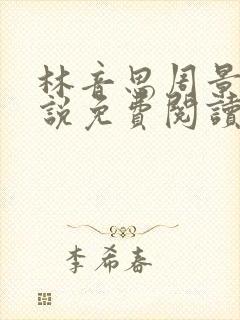 林音思周景
説免費閱讀
李希春